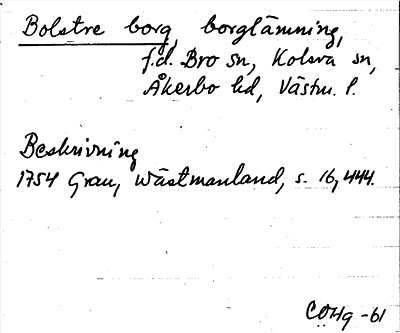 Bolstre borg, borglämning,
f.d. Bro sn, Kolsva sn,
Åkerbo hd, Västm. l.
Beskrivning
1754 Grau, Wästmanland, s. 16, 444.
COHg -61